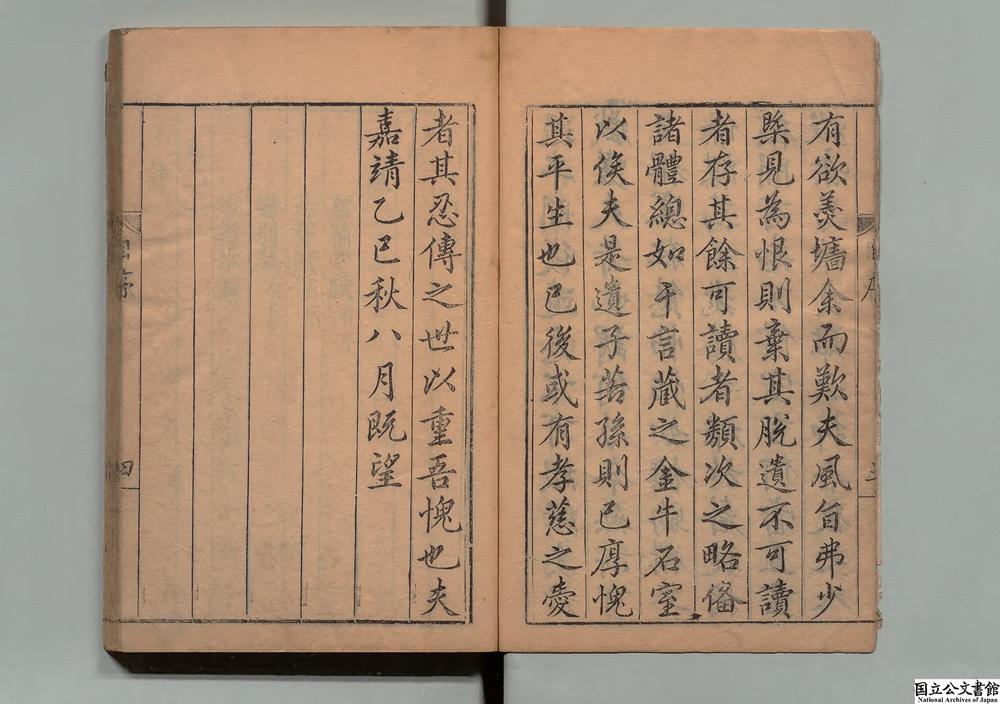 有欲羡墻余而歎夫風旨弗少
槩見為恨則棄其脫遺不可讀
者存其餘可讀者類次之略俻
諸體總如干言藏之金牛石室
以俟夫是遺子若孫則已厚愧
其平生也已後或有孝慈之憂
者其忍傳之世以重吾愧也夫
嘉靖乙巳秋八月既望
自序
四
国立公文書館
National Archives of Japan